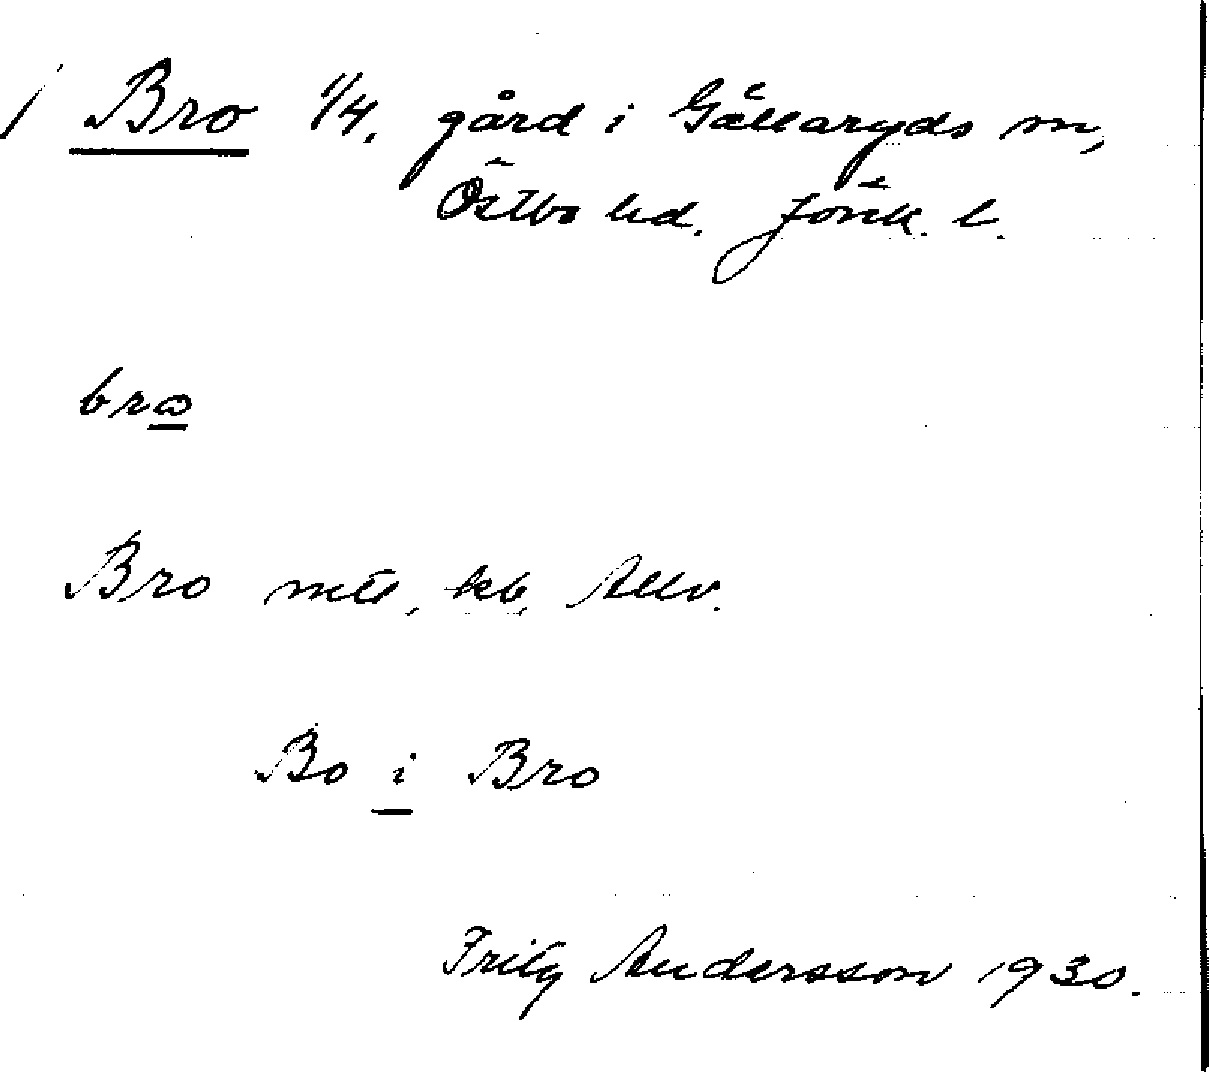 Bro 1/4. gård i Gällaryds sn,
Östbo hd. Jönk. l.
bro
Bro mtl, kb, Allv.
Bo i Bro
Fritz Andersson 1930.